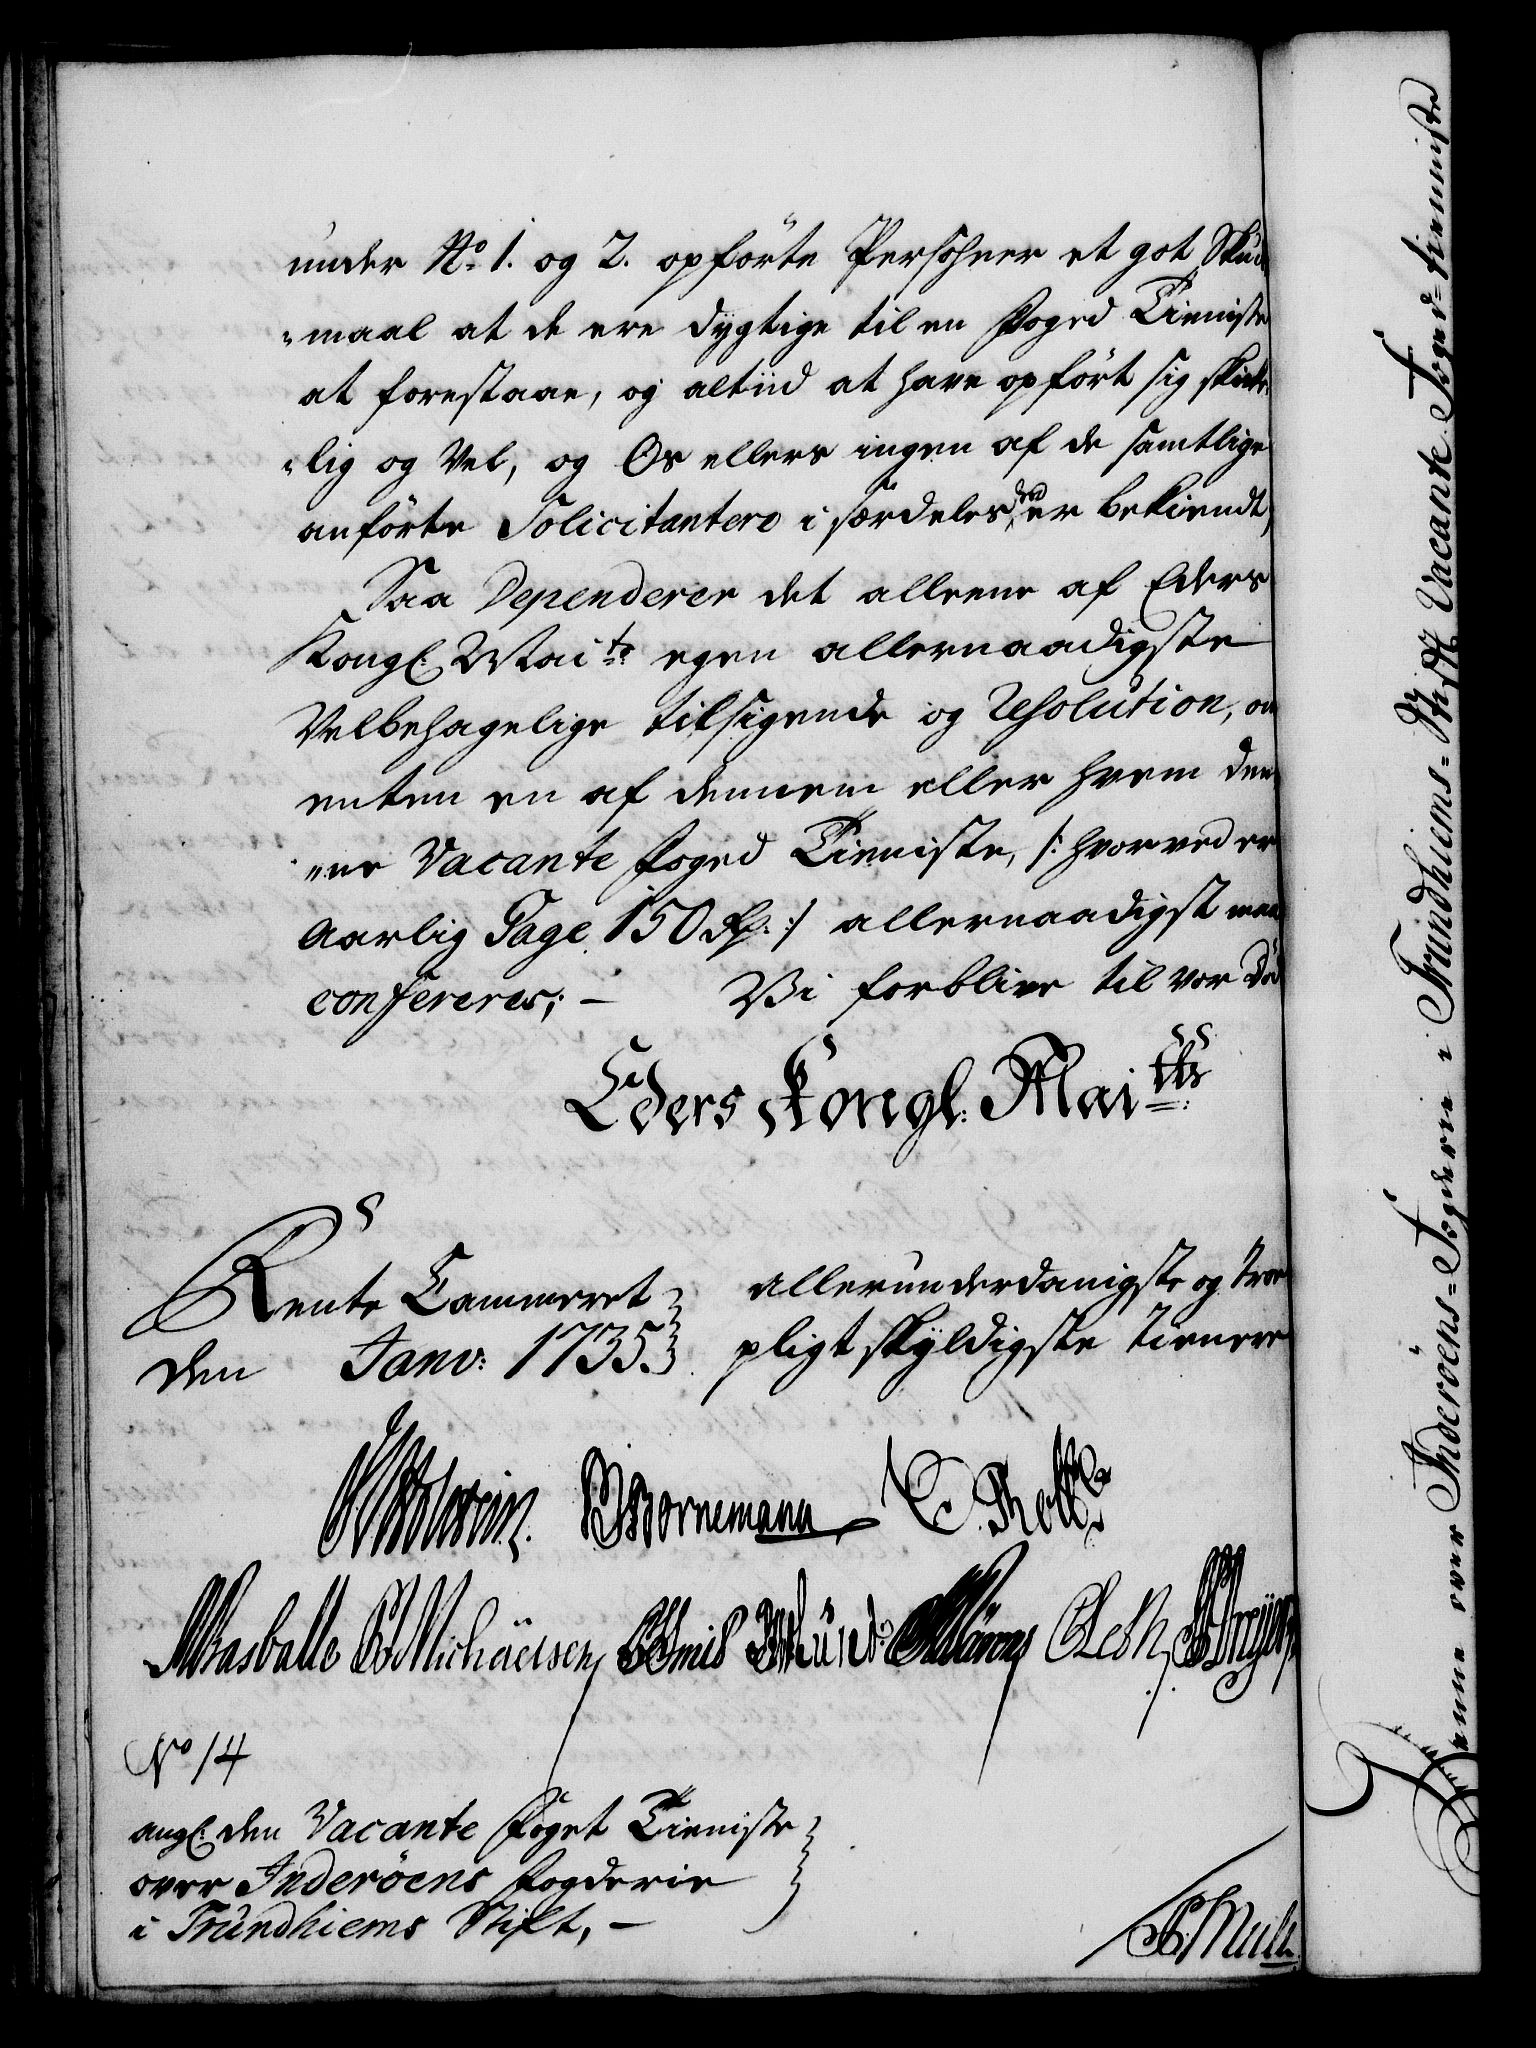 under No 1. og 2. opförte Persohner et got Skud
-maal at de ere dygtige til en Foged Tieniste
at forestaae, og altiid at have opfört sig skicke
-lig og Vel, og Os ellers ingen af de samtlige
anförte Solicitantere i særdeleshed er bekiendt,
Saa Dependerer det alleene af Eders
Kongl: Maits egen allernaadigste
Velbehagelige tilsigende og Resolution, om
enten en af dennem eller hvem den
-ne Vacante Foged Tieniste, /: hvorved er
Aarlig Gage 150 Rd: :/ allernaadigst maa
confereres; — Vi forblive til vor Död
Eders Kongl: Maits
Rente Cammeret
den Janv: 1735.
allerunderdanigste og troe
pligtskyldigste tienere
Bornemann
Rasballe Michäelsen
No 14
angl: den Vacante Foget Tieniste
over Inderöens Fogderie
i Trundhiems Stift, —
Denne over Inderöens-Fogderie i Trundhiems-Stifft Vacante Foged-tienniste